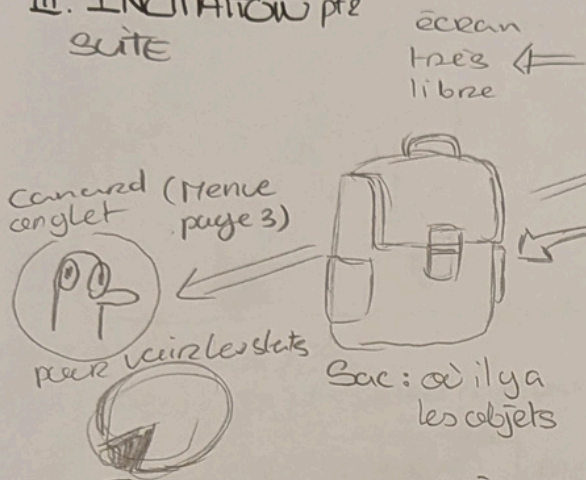 III. INCITATION pt2
SUITE
écran
très
libre
canard (Menue
onglet page 3)
pour voir les stats
Sac : où il y a
les objets